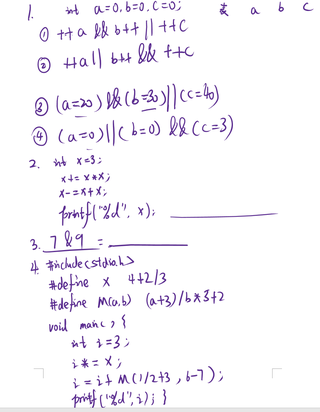 1. int a=0,b=0,c=0; 表 a b c
① ++a && b++ || ++c
② ++a || b++ && ++c
③ (a=20) && (b=30) || (c=40)
④ (a=0) || (b=0) && (c=3)
2. int x=3;
x+= x*x;
x-=x+x;
printf("%d", x);
3. 7&9 =
4. #include<stdio.h>
#define x 4+2/3
#define M(a,b) (a+3)/b*3+2
void main() {
int i=3;
i*= x;
i = i+ M(1/2+3, b-7);
printf("%d", i); }